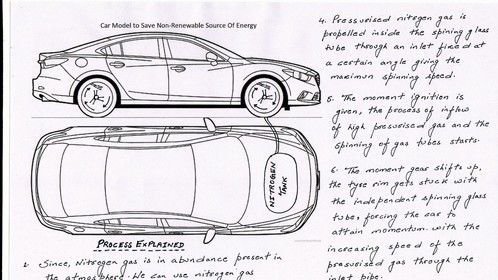 Car Model to Save Non-Renewable Source Of Energy
NITROGEN
TANK
PROCESS EXPLAINED
Since, Nitrogen gas is in abundance present in
the atmosphere. We can use nitrogen gas
4. Pressurised nitrogen gas is
propelled inside the spining glass
tube through an inlet fixed at
a certain angle giving the
maximum spinning speed.
5. The moment ignition is
given, the process of inflow
of high pressurised gas and the
spinning of gas tubes starts.
6. The moment gear shifts up,
the tyre rim gets stuck with
the independent spinning glass
tube, forcing the car to
attain momentum. with the
increasing speed of the
pressurised gas through the
inlet pipe.